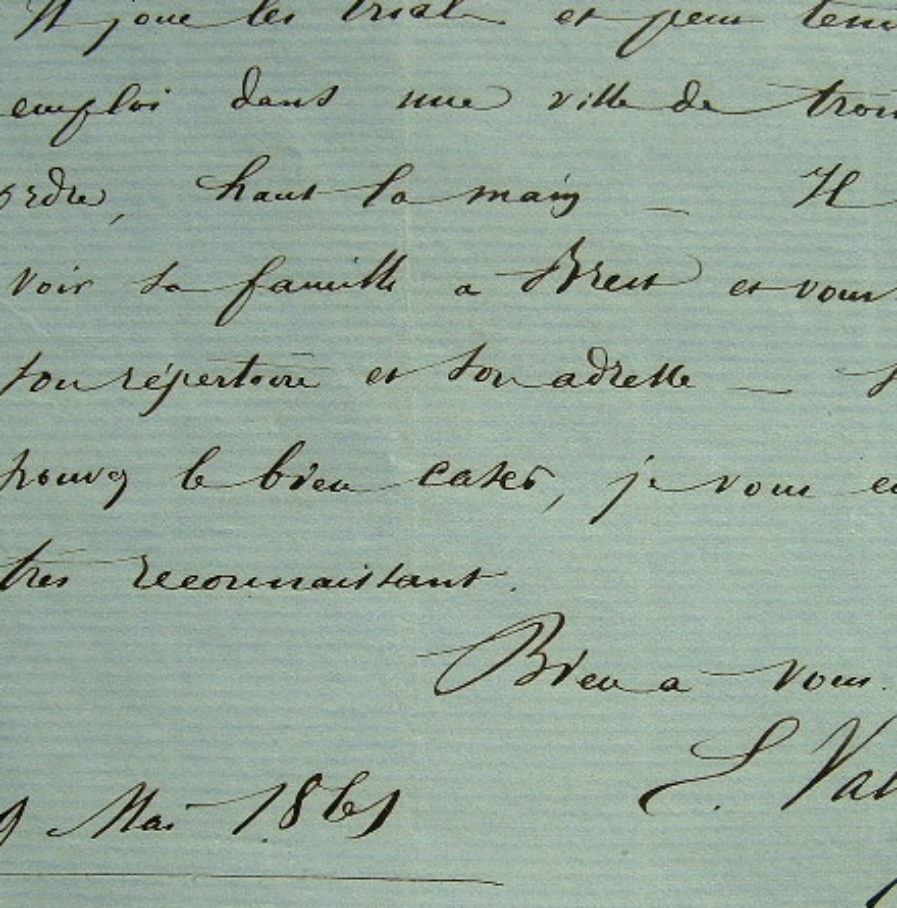 Il joue les trial et peut teni
emploi dans une ville de trois
ordre, haut la main – Il
voir sa famille a Brest et vous
son répertoire et son adresse – S
pouvez le bien caser, je vous en
très reconnaissant.
Bien a vous.
L. Val
9 Mai 1861